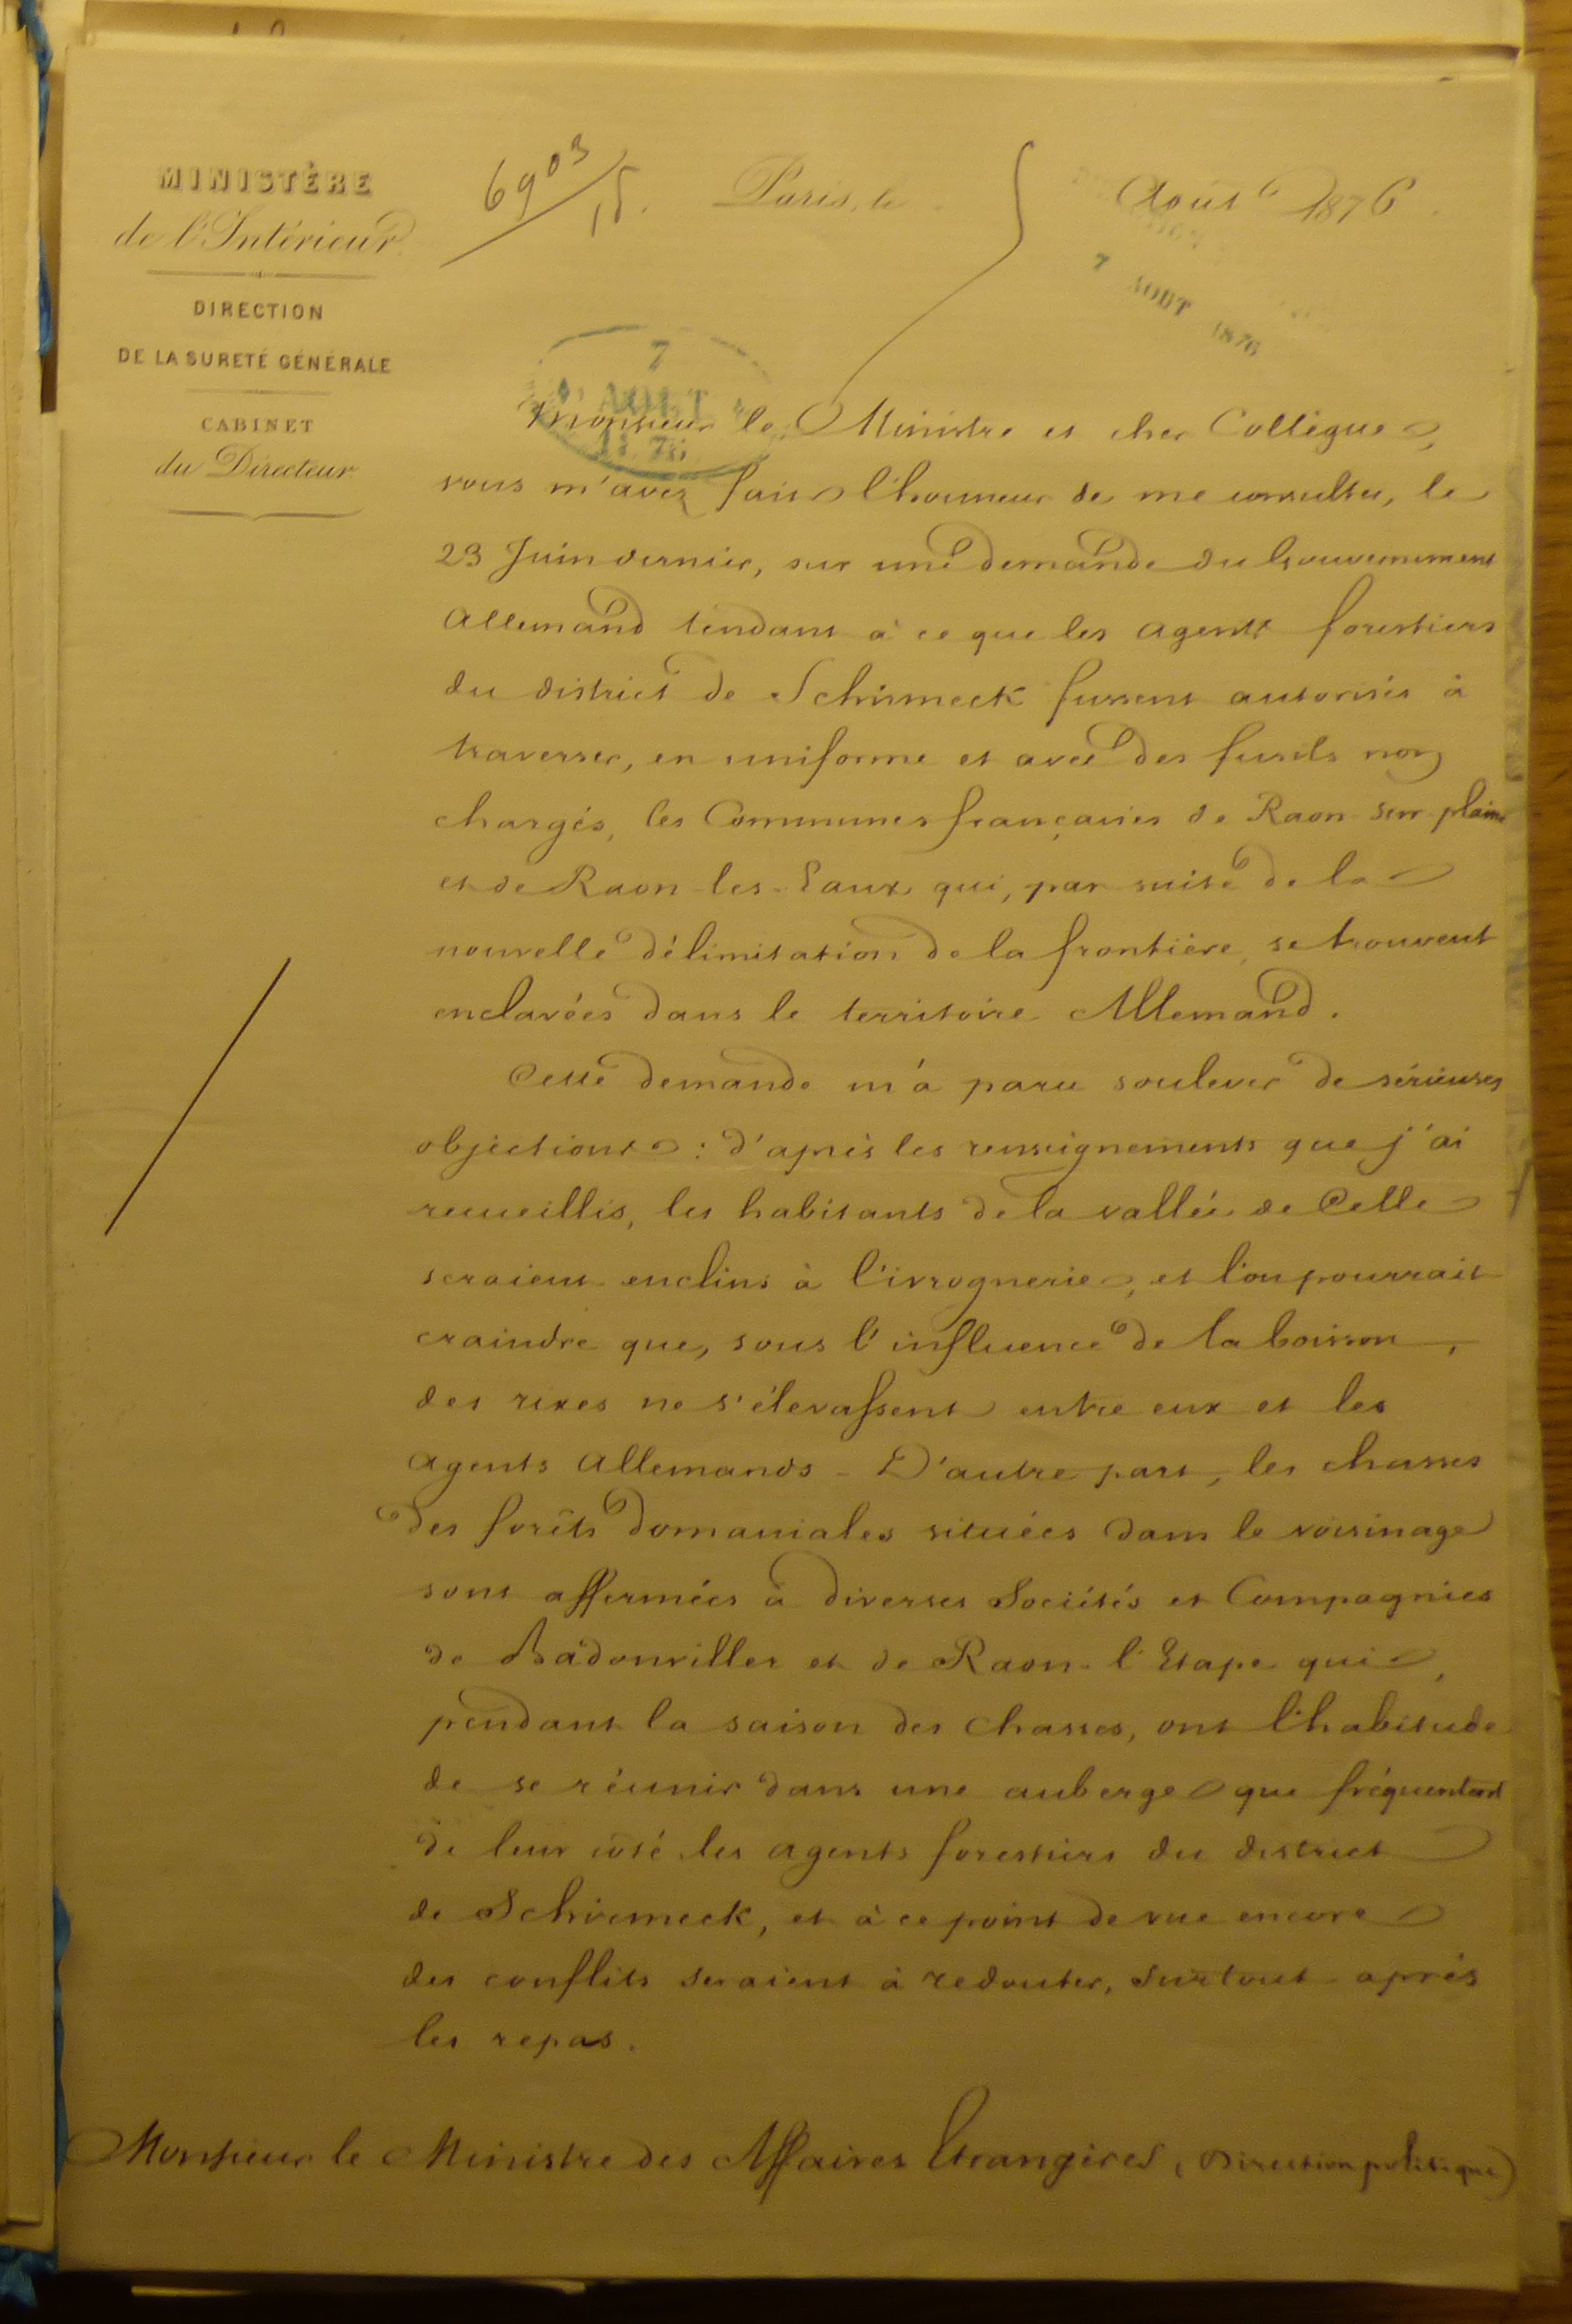 MINISTÈRE
de l'Intérieur
DIRECTION
DE LA SURETÉ GÉNÉRALE
CABINET
du Directeur
6903
Paris, le
Août 1876
7 AOUT 1876
7
AOUT
1876
Monsieur le Ministre et cher Collègue,
vous m'avez fait l'honneur de me consulter, le
23 Juin dernier, sur une demande du Gouvernement
Allemand tendant à ce que les agents forestiers
du district de Schirmeck fussent autorisés à
traverser, en uniforme et avec des fusils non
chargés, les Communes françaises de Raon-sur-plaine
et de Raon-les-Eaux qui, par suite de la
nouvelle délimitation de la frontière, se trouvent
enclavées dans le territoire Allemand.
Cette demande m'a paru soulever de sérieuses
objections : d'après les renseignements que j'ai
recueillis, les habitants de la vallée de Celle
seraient enclins à l'ivrognerie, et l'on pourrait
craindre que, sous l'influence de la boisson,
des rixes ne s'élevassent entre eux et les
agents Allemands - D'autre part, les chasses
des forêts domaniales situées dans le voisinage
sont affermées à diverses Sociétés et Compagnies
de Badonviller et de Raon-l'Etape qui,
pendant la saison des chasses, ont l'habitude
de se réunir dans une auberge que fréquentent
de leur côté les agents forestiers du district
de Schirmeck, et à ce point de vue encore
des conflits seraient à redouter, surtout après
les repas.
Monsieur le Ministre des Affaires Etrangères, (Direction politique)